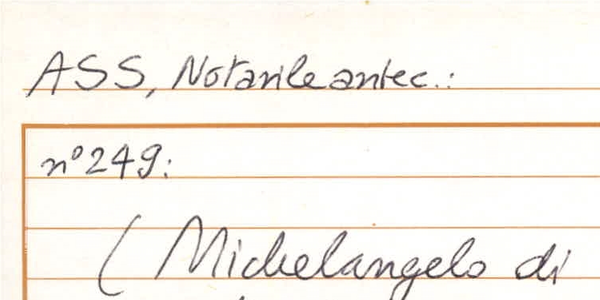 ASS, Notarile antec.:
n° 249:
( Michelangelo di